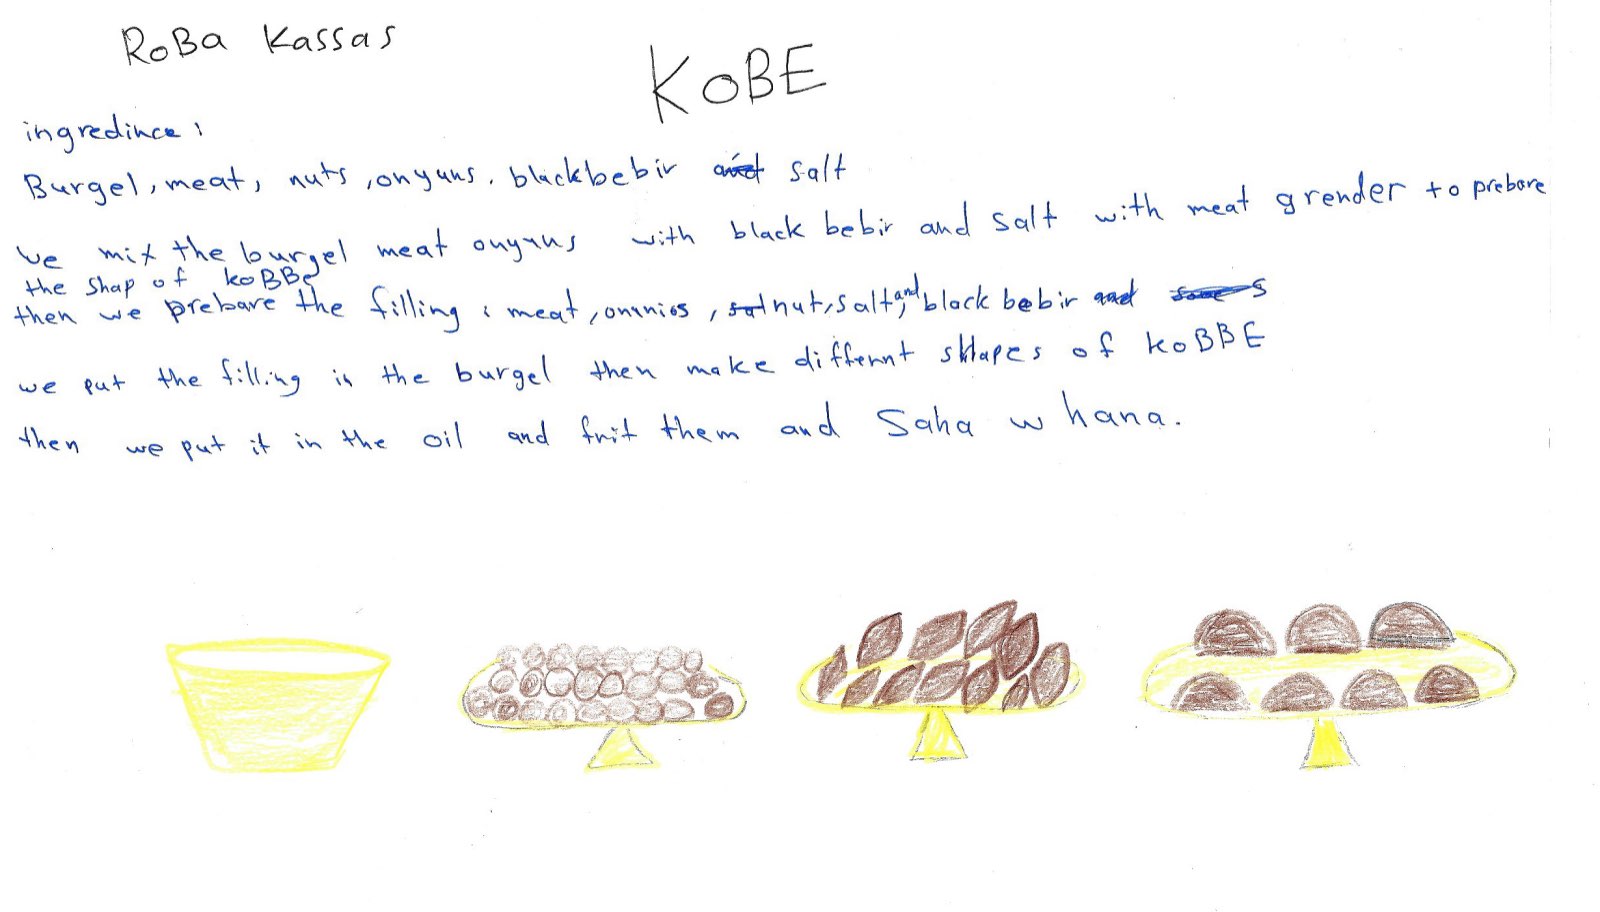 RoBa Kassas
KoBE
ingredince :
Burgel, meat, nuts, onyuns, blackbebir and salt
we mix the burgel meat onyuns with black bebir and salt with meat grender to prebare
the shap of koBBe
then we prebare the filling : meat, onunios, nut, salt, and black bebir and
we put the filling in the burgel then make differnt shapes of koBBE
then we put it in the oil and frit them and Saha w hana.